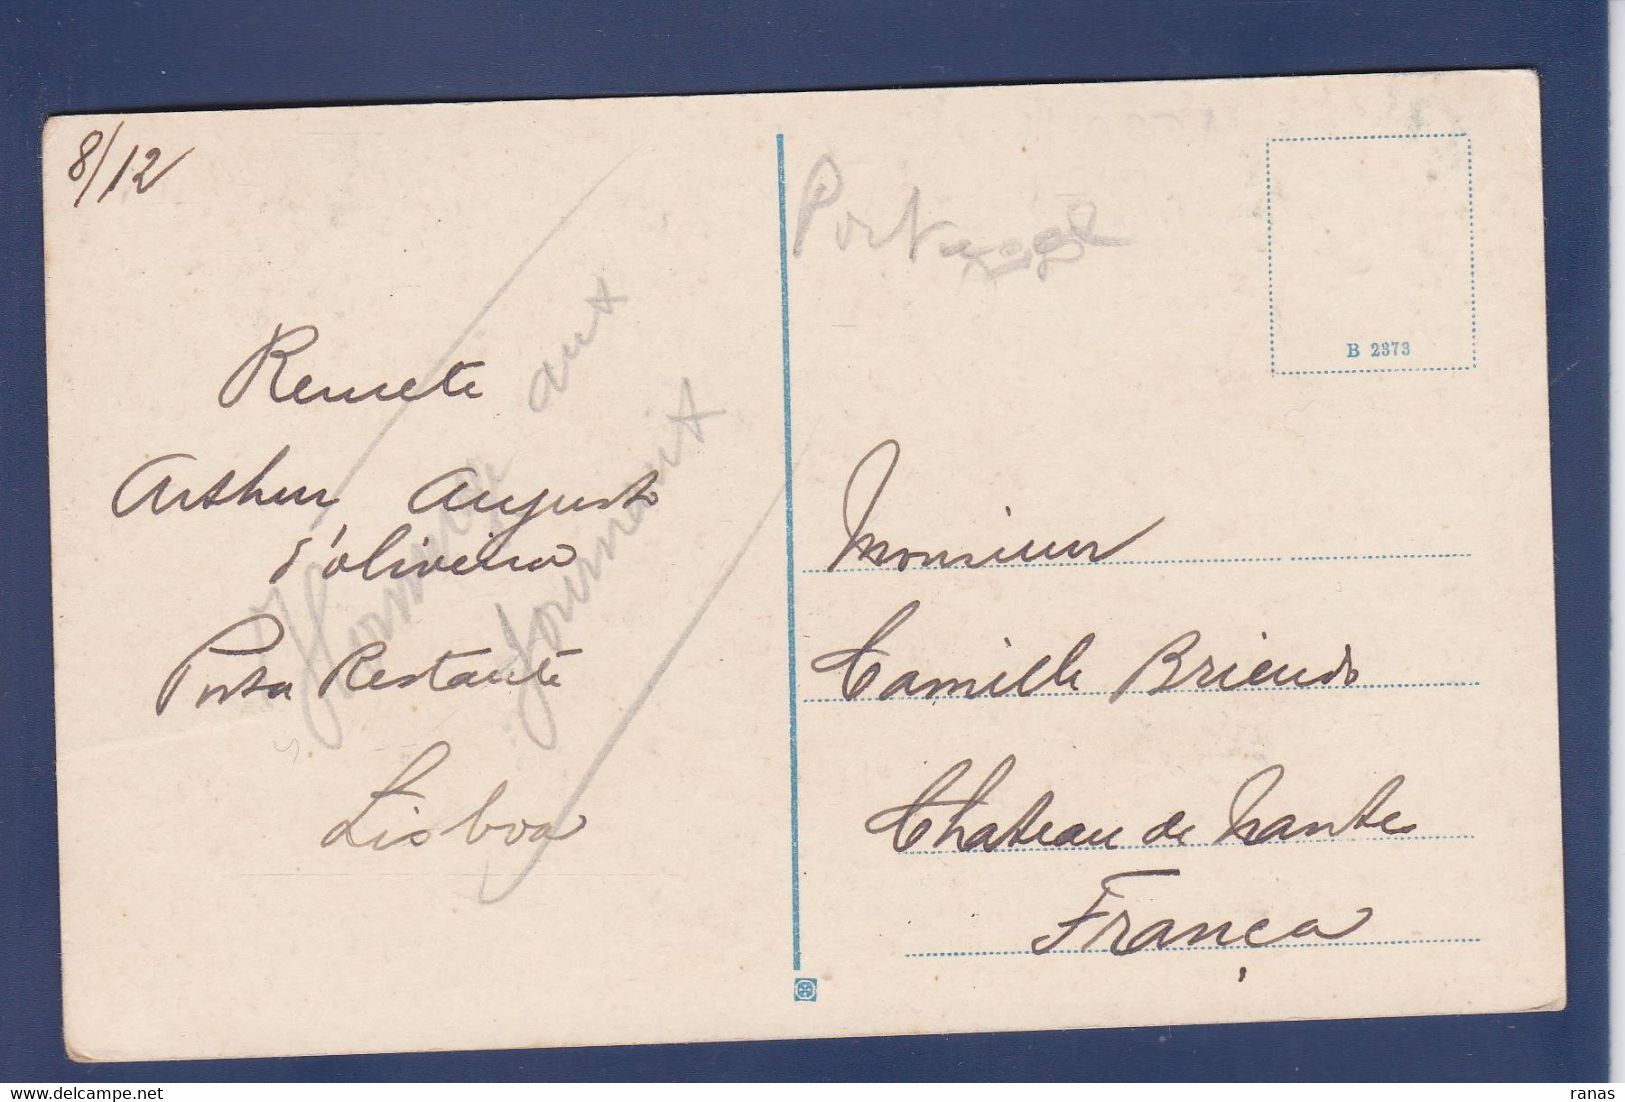 8/12
Remete
Arthur Augusto
d'oliveira
Posta Restante
Lisboa
aux
Portugal
B 2373
Monsieur
Camille Briend
Chateau de Nantes
França
ranas